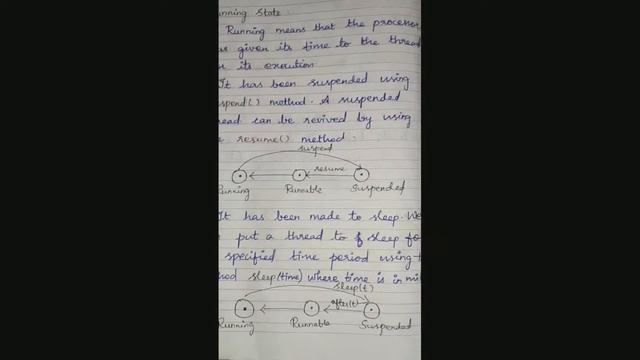 unning State.
Running means that the processor
as given its time to the thread
its exection
It has been suspended using
spend() method. A suspended
read can be revived by using
resume() method.
suspend
resume
Running Runnable Suspended
It has been made to sleep. We
put a thread to sleep fo
specified time period using t
hod sleep(time) where time is in mil
sleep(t)
after(t)
Running Runnable Suspended